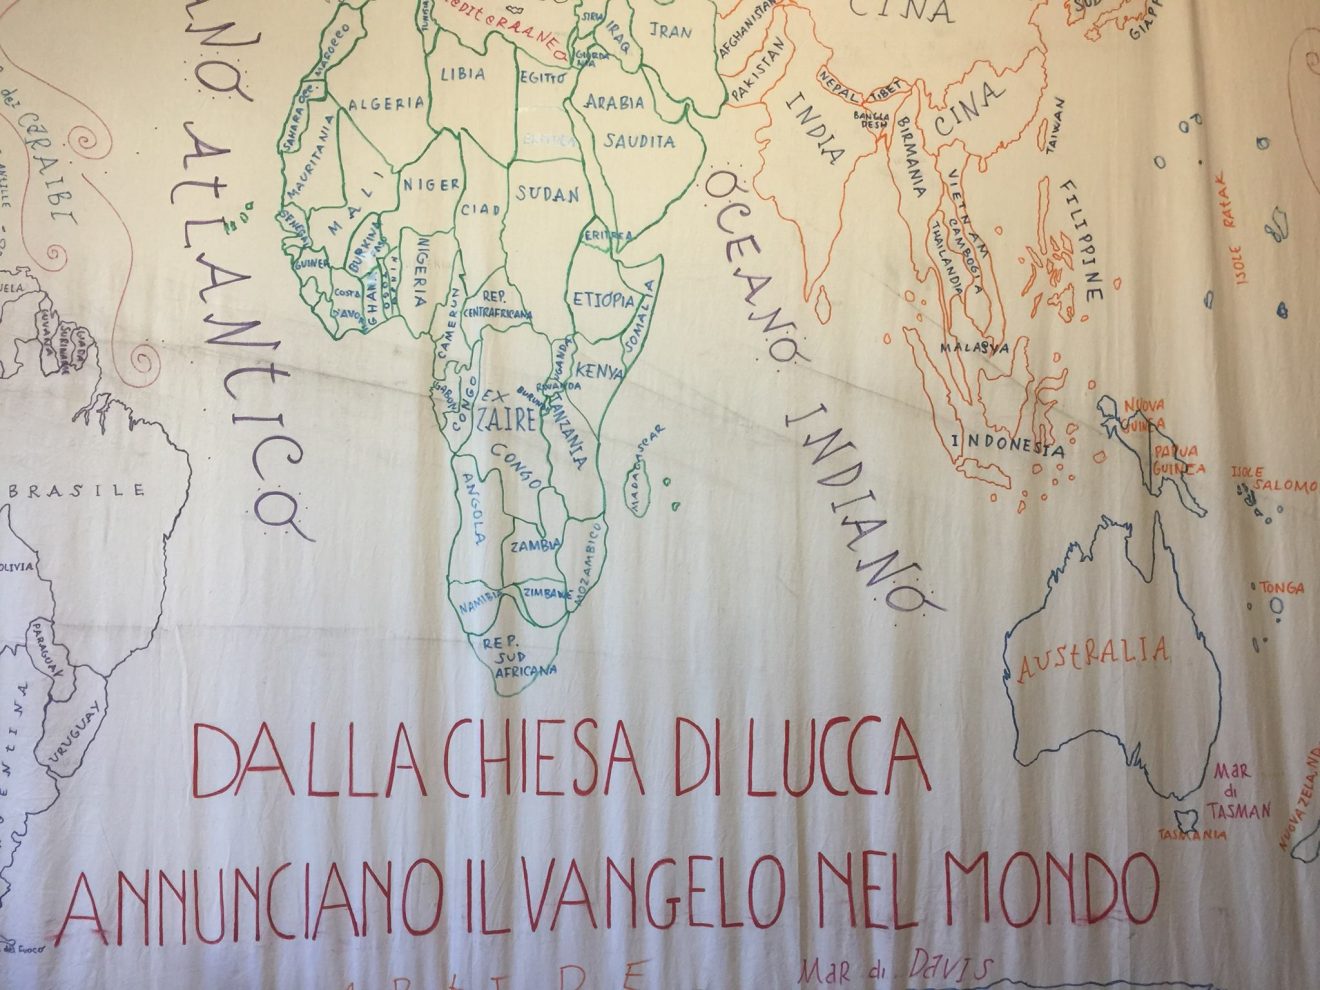 CINA
MEDITERRANEO
TUNISIA
SIRIA
IRAQ
IRAN
AFGHANISTAN
PAKISTAN
GIORDA
NIA
MAROCCO
ALGERIA
LIBIA
EGITTO
ARABIA
SAUDITA
SAHARA OCC.
MAURITANIA
MALI
NIGER
CIAD
SUDAN
ERITREA
SENEGAL
GUINEA
COSTA
D'AVORIO
BURKINA
FASO
GHANA
TOGO
BENIN
NIGERIA
CAMERUN
REP.
CENTRAFRICANA
ETIOPIA
SOMALIA
UGANDA
KENYA
RWANDA
BURUNDI
GABON
CONGO
EX
ZAIRE
CONGO
TANZANIA
ANGOLA
ZAMBIA
MOZAMBICO
NAMIBIA
ZIMBAWE
REP.
SUD
AFRICANA
MADAGASCAR
NEPAL
TIBET
BANGLA
DESH
INDIA
CINA
BIRMANIA
TAIWAN
VIETNAM
CAMBOGIA
THAILANDIA
FILIPPINE
MALASYA
INDONESIA
ISOLE RATAK
NUOVA
GUINEA
PAPUA
GUINEA
ISOLE
SALOMO
TONGA
AUSTRALIA
MAR
di
TASMAN
TASMANIA
NUOVA ZELAND
OCEANO INDIANO
ANO ATLANTICO
CARAIBI
GUYANA
SURINAME
BRASILE
OLIVIA
PARAGUAY
URUGUAY
ENTINA
DALLA CHIESA DI LUCCA
ANNUNCIANO IL VANGELO NEL MONDO
FUOCO
MAR di DAVIS